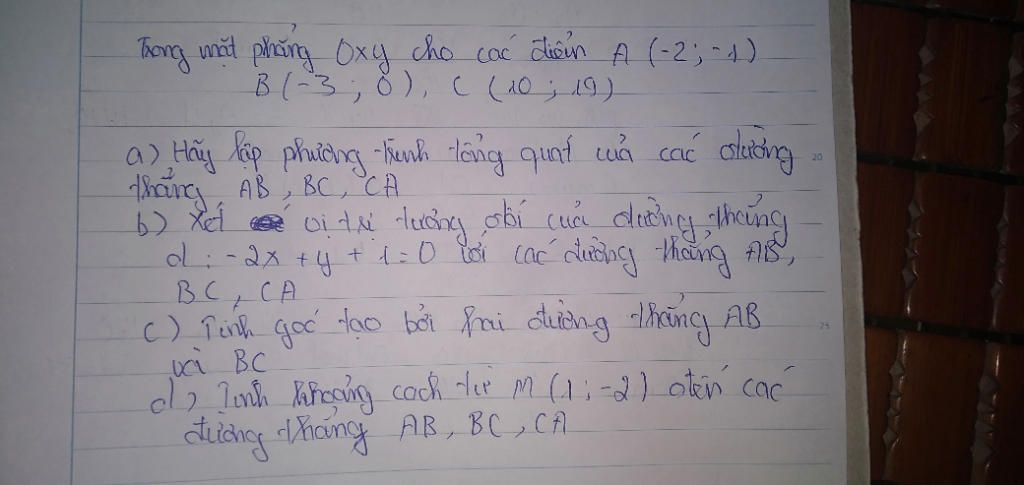 Trong mặt phẳng Oxy cho các điểm A (-2; -1)
B (-3 ; 0), C (10 ; 19)
a) Hãy lập phương trình tổng quát của các đường 20
thẳng AB, BC, CA
b) Xét vị trí tương đối của đường thẳng
d : -2x + y + 1 = 0 với các đường thẳng AB,
BC, CA
c) Tính góc tạo bởi hai đường thẳng AB 25
và BC
d) Tính khoảng cách từ M (1; -2) đến các
đường thẳng AB, BC, CA